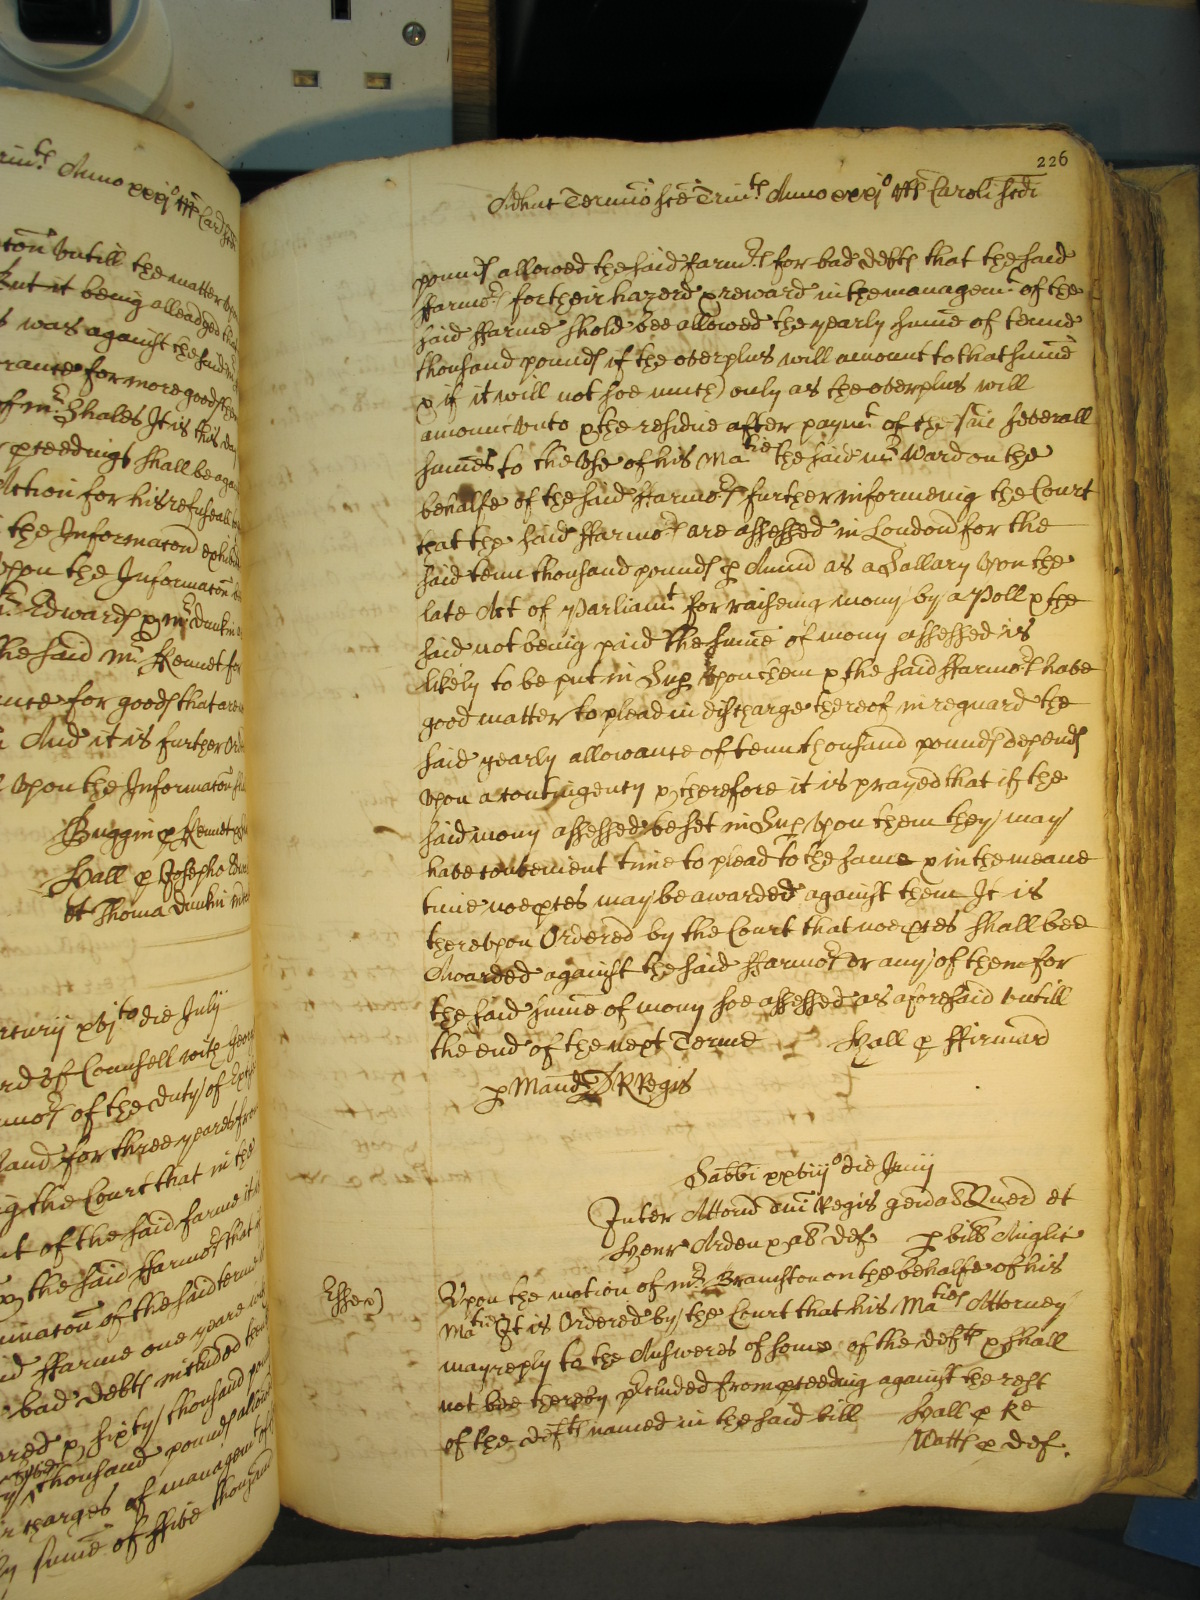 226
Adhuc Termio sce Trinit Anno xxxjo RRs Caroli scdi
pounds allowed the said Farmors for bad debts that the said
ffarmors for their hazerd & reward in the managemt of the
said ffarme shold bee allowed the yearly sume of tenne
thousand pounds if the overplus will amount to that sume
& if it will not soe much only as the overplus will
amount vnto & the residue after paymt of the severall
sumes to the vse of his Matie the said mr Ward on the
behalfe of the said ffarmors further informeing the Court
that the said ffarmors are assessed in London for the
said tenn thousand pounds p Annu as a Sallary vpon the
late Act of Parliamt for raiseing mony by a Poll & the
said not being paid the sume of mony assessed is
likely to be put in Sup vpon them & the said ffarmors have
good matter to plead in discharge thereof in reguard the
said yearly allowance of tenn thousand pounds depends
vpon a contingency & therefore it is prayed that if the
said mony assessed be set in Sup vpon them they may
have convenient time to plead to the same & in the meane
time noe pces may be awarded against them It is
therevpon Ordered by the Court that noe pces shall bee
Awarded against the said ffarmors or any of them for
the said sume of mony soe assessed as aforesaid vntill
the end of the next Terme Hall p ffirmar
p Mand RRegis
Sabbi xxviijo die Junij
Inter Attorn dni Regis genal Quer et
Henr Arden & al def p bill Anglic
Essex) Vpon the motion of mr Bramston on the behalfe of his
Matie It is Ordered by the Court that his Maties Attorney
may reply to the Answeres of some of the defts & shall
not bee thereby pcluded from pceeding against the rest
of the defts named in the said bill Hall p Re
Watts p def.
Anno xxxjo
vntill the matter
but it being alleadged that
was against the said
for more goods then
of mr Shales It is this day
pceedings shall be
Action for his refuseall
the Informacon exhibited
vpon the Informacon
Edwards & mr Dunkin
the said mr Kennet for
for goods that are
And it is further Ordered
vpon the Informacon
Buggin p Kennet
Hall p Josepho
et Thoma Dunkin
xvjto die July
of Counsell with
of the duty of
and for three yeares from
the Court that in the
of the said farme it
the said ffarmors that
of the said terme
ffarme one yeare
bad debts included
& sixty thousand
thousand pounds
charges of managemt
sume of ffive thousand